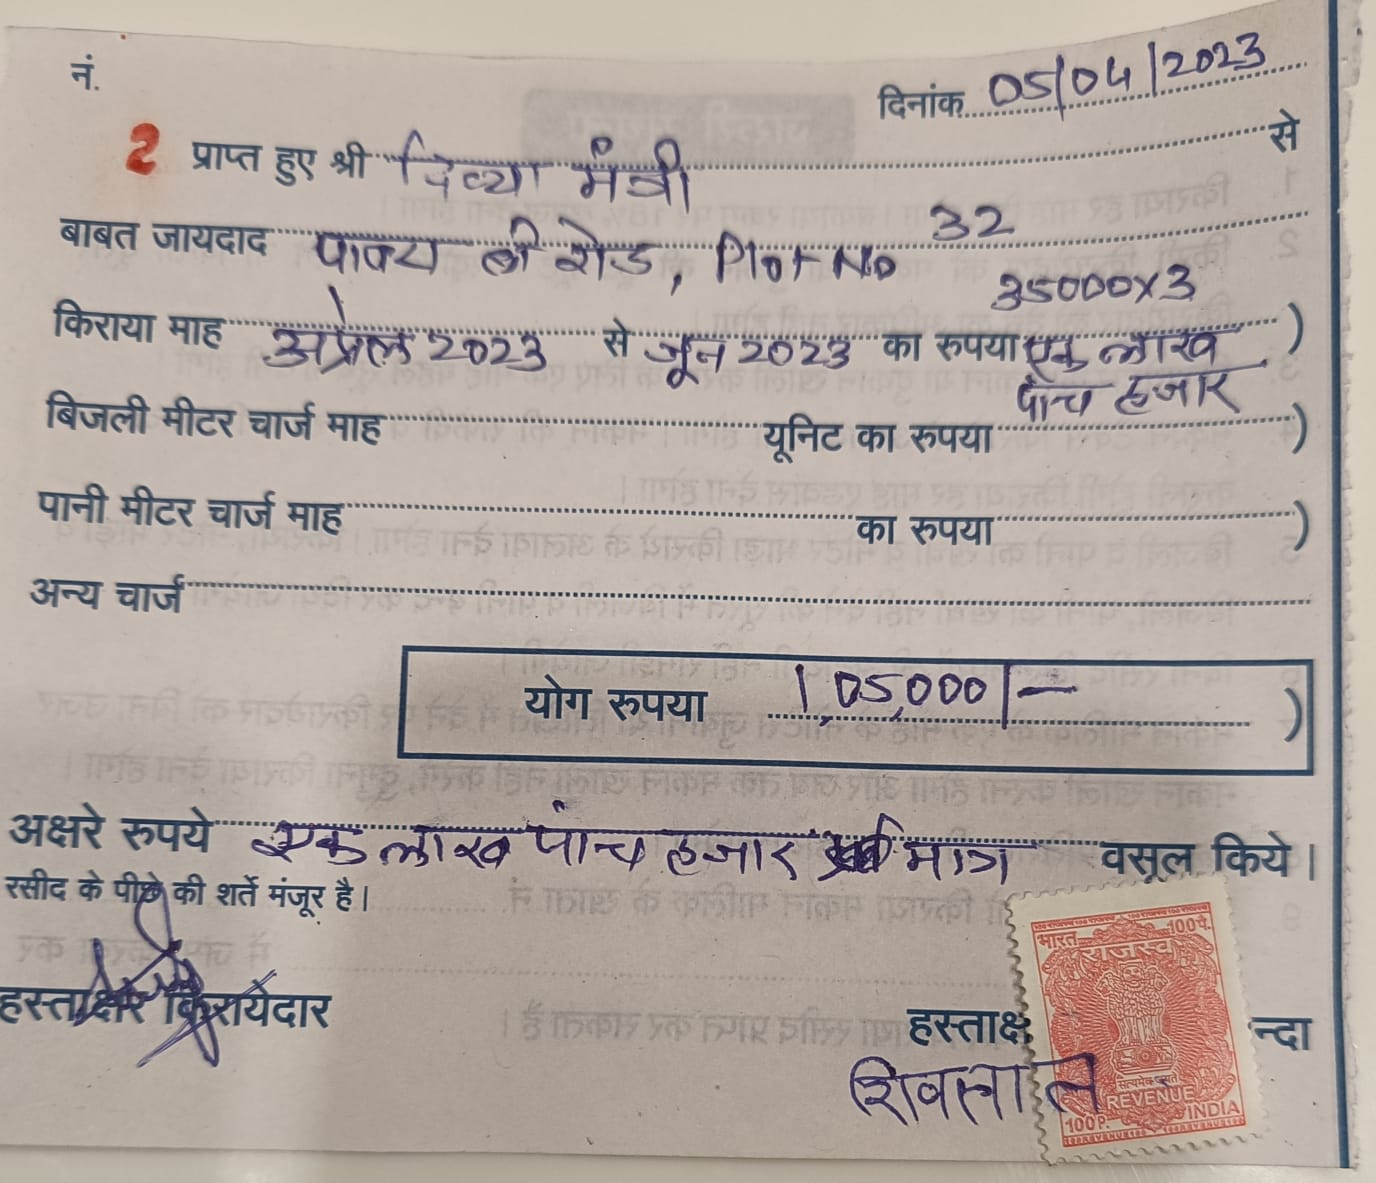 नं.
दिनांक 05/04/2023
2 प्राप्त हुए श्री दिव्या मंत्री से
बाबत जायदाद पावटा बी रोड, Plot No 32
35000x3
किराया माह अप्रेल 2023 से जून 2023 का रुपया एक लाख )
पांच हजार
बिजली मीटर चार्ज माह यूनिट का रुपया )
पानी मीटर चार्ज माह का रुपया )
अन्य चार्ज
योग रुपया 1,05,000/- )
अक्षरे रुपये एक लाख पांच हजार मात्र वसूल किये।
रसीद के पीछे की शर्ते मंजूर है।
भारत 100 पै.
राजस्व
हस्ताक्षर किरायेदार
हस्ताक्ष न्दा
सत्यमेव जयते
शिवलाल
REVENUE
INDIA
100 P.